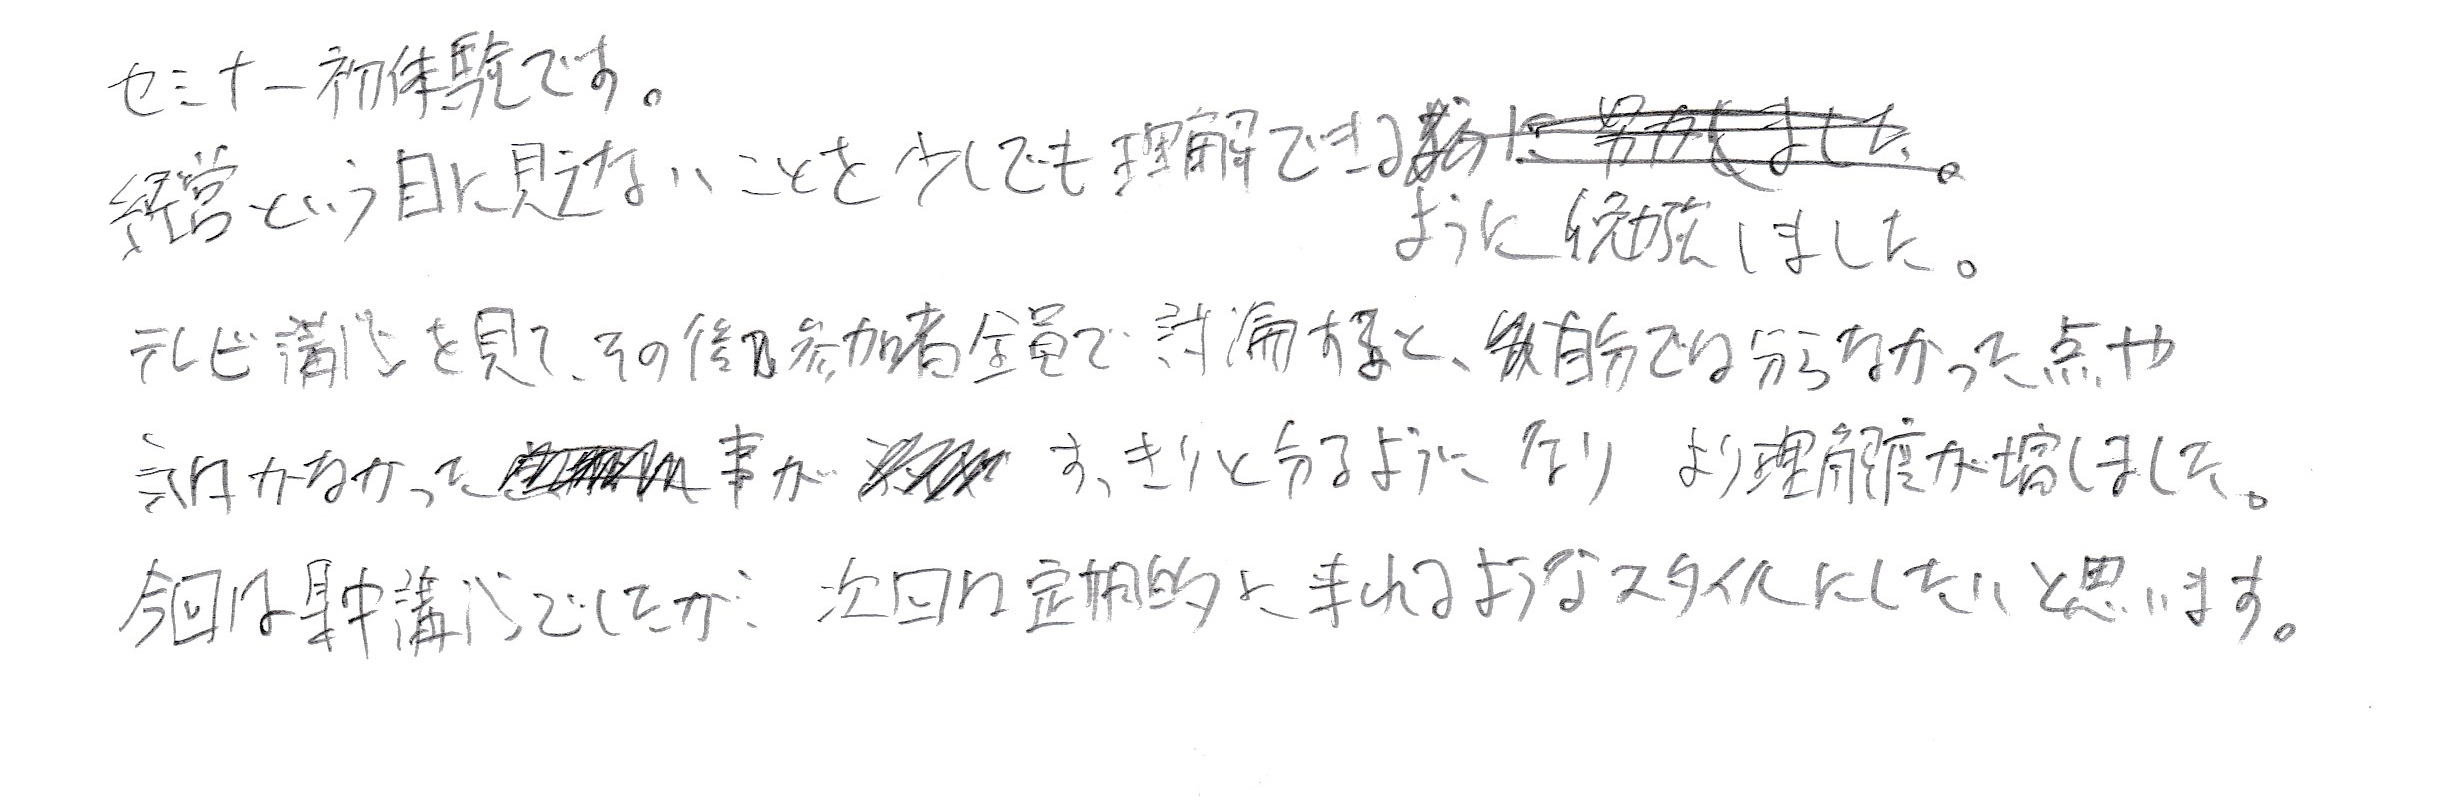 セミナー初体験です。
経営という目に見えないことを少しでも理解できる
ように勉強しました。
テレビ講座を見て、その後、参加者全員で討論すると、自分では分らなかった点や
気付かなかった事がすっきりと分るようになり より理解度が増しました。
今回は集中講座でしたが、次回は定期的に来れるようなスタイルにしたいと思います。